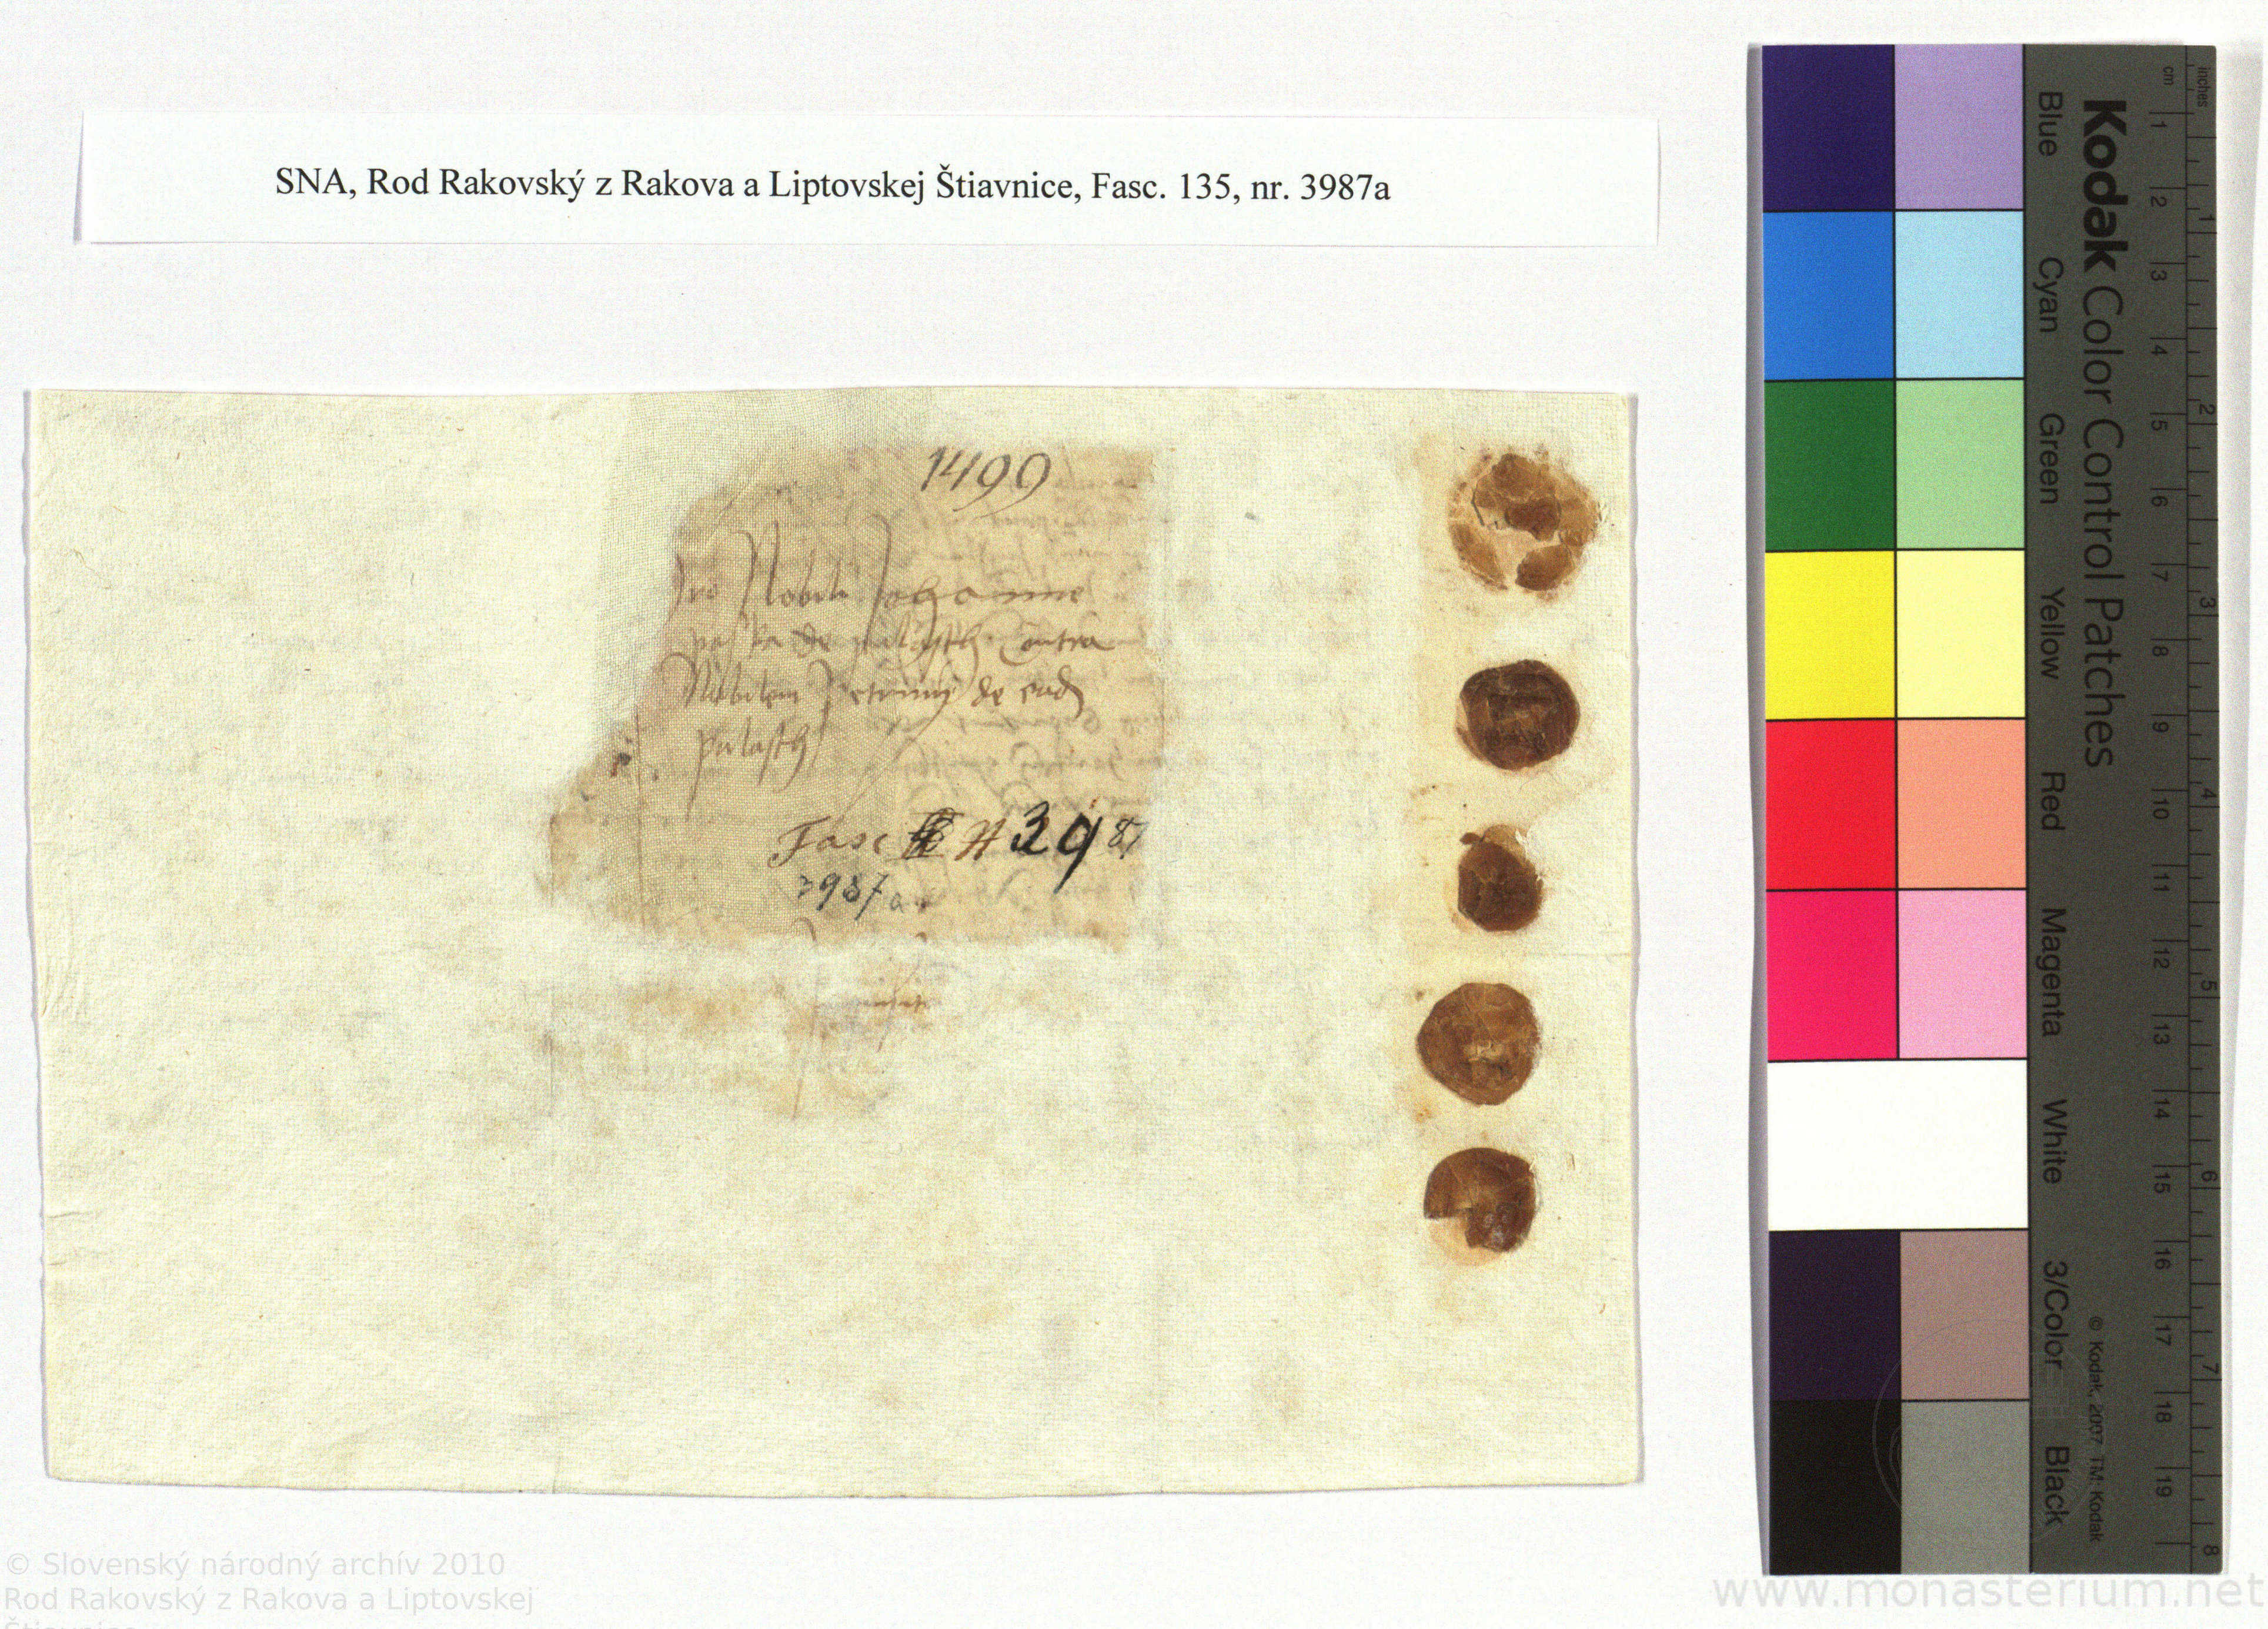 SNA, Rod Rakovský z Rakova a Liptovskej Štiavnice, Fasc. 135, nr. 3987a
1499
Pro Nobili Johanne
de palasth Contra
Nobilem de ead
palasth
Fasc # 3987
3987 a
Kodak Color Control Patches
Blue Cyan Green Yellow Red Magenta White 3/Color Black
© Kodak, 2007 TM: Kodak
cm 1 2 3 4 5 6 7 8 9 10 11 12 13 14 15 16 17 18 19
inches 1 2 3 4 5 6 7 8
© Slovenský národný archív 2010
Rod Rakovský z Rakova a Liptovskej
Štiavnice
www.monasterium.net